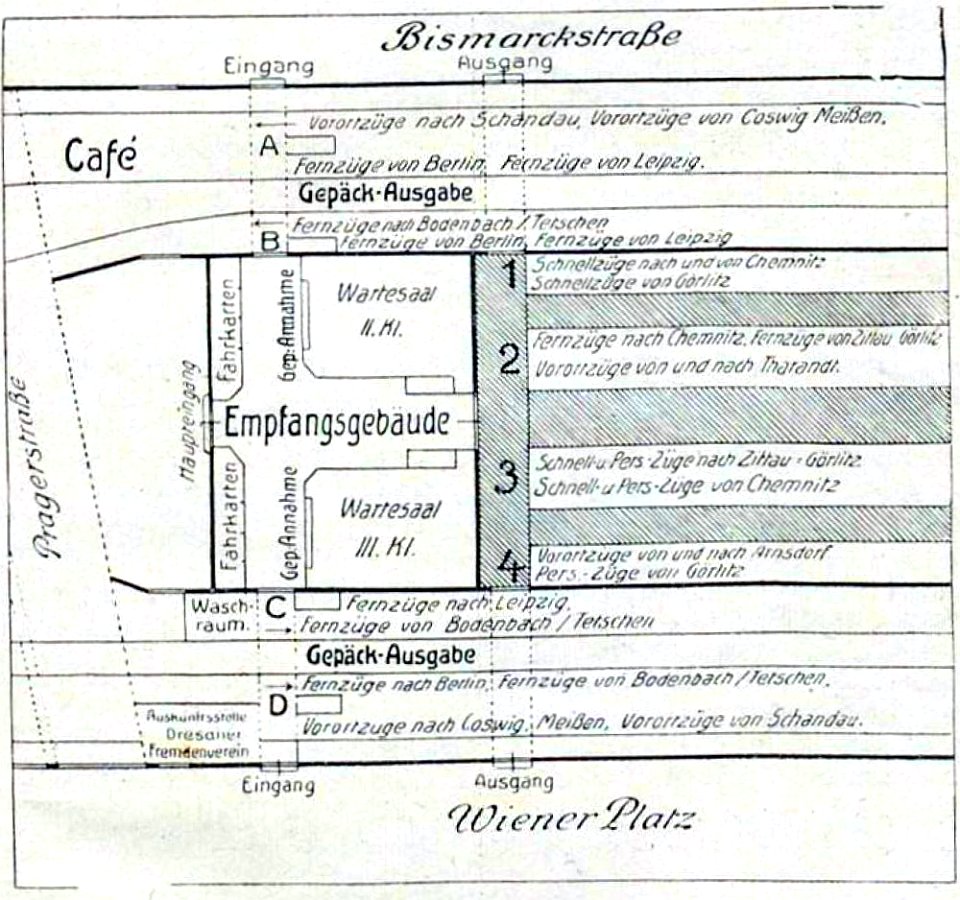 Bismarckstraße
Eingang
Ausgang
Vorortzüge nach Schandau, Vorortzüge von Coswig Meißen.
Café
A
Fernzüge von Berlin, Fernzüge von Leipzig.
Gepäck-Ausgabe
Fernzüge nach Bodenbach / Tetschen
B
Fernzüge von Berlin, Fernzüge von Leipzig
1
Schnellzüge nach und von Chemnitz
Schnellzüge von Görlitz
Fahrkarten
Gep:Annahme
Wartesaal
II. Kl.
2
Fernzüge nach Chemnitz, Fernzüge von Zittau Görlitz
Vorortzüge von und nach Tharandt.
Pragerstraße
Haupteingang
Empfangsgebäude
3
Schnell-u Pers-Züge nach Zittau - Görlitz
Schnell-u Pers-Züge von Chemnitz
Fahrkarten
Gep:Annahme
Wartesaal
III. Kl.
4
Vorortzüge von und nach Arnsdorf
Pers.-Züge von Görlitz
Wasch-
raum.
C
Fernzüge nach Leipzig.
Fernzüge von Bodenbach / Tetschen
Gepäck-Ausgabe
Fernzüge nach Berlin, Fernzüge von Bodenbach / Tetschen.
D
Vorortzüge nach Coswig, Meißen, Vorortzüge von Schandau.
Auskunftsstelle
Dresdner
Fremdenverein
Eingang
Ausgang
Wiener Platz